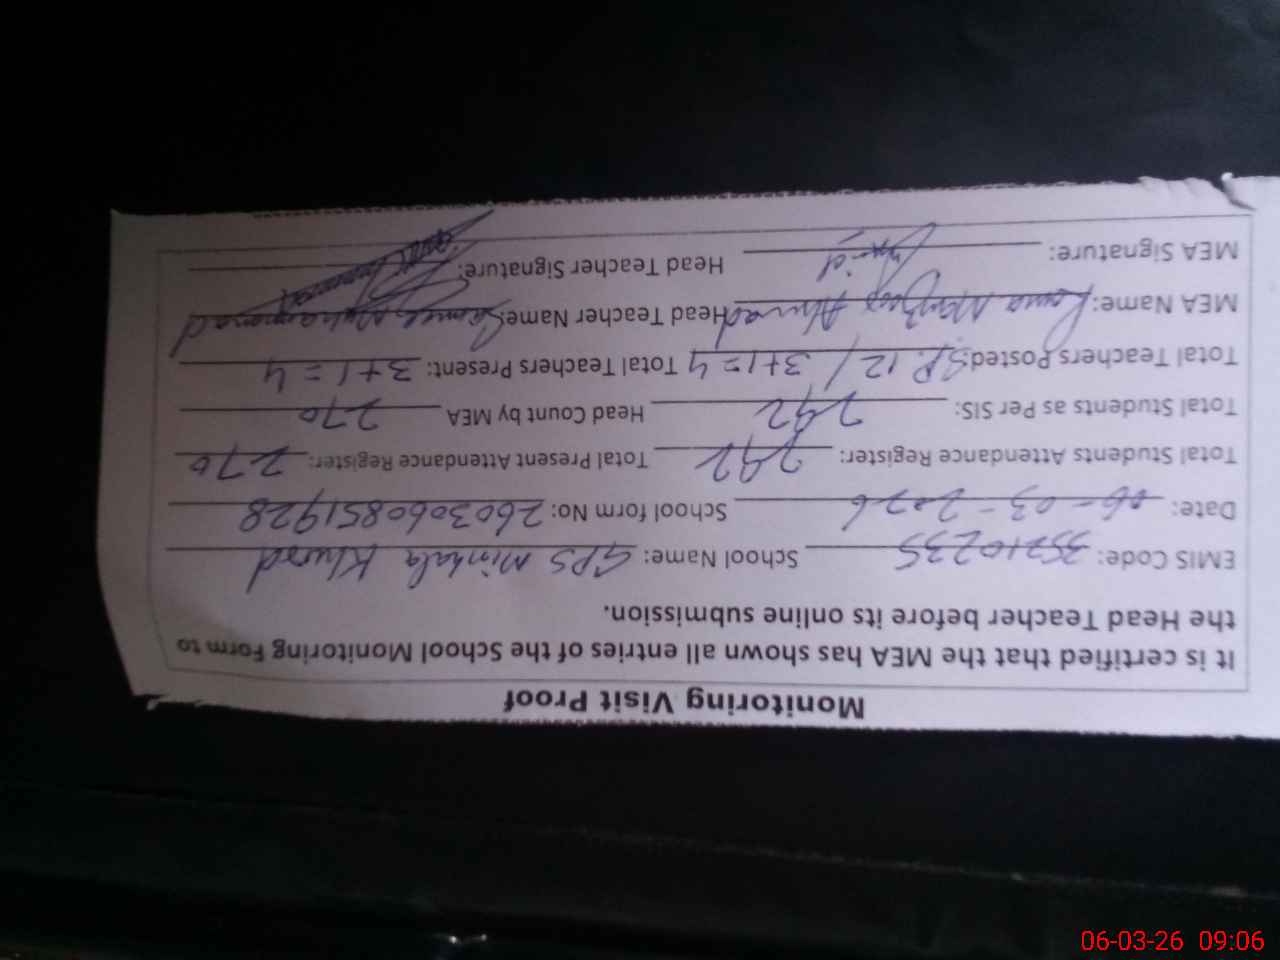 Monitoring Visit Proof
It is certified that the MEA has shown all entries of the School Monitoring Form to
the Head Teacher before its online submission.
EMIS Code: 35210235 School Name: GPS Minhala Khurd
Date: 06-03-2026 School form No: 2603060851928
Total Students Attendance Register: 292 Total Present Attendant Register: 270
Total Students as Per SIS: 292 Head Count by MEA 270
Total Teachers Posted: S.P. 12 / 3+1=4 Total Teachers Present: 3+1=4
MEA Name: Ahmad Head Teacher Name: Muhammad
MEA Signature: Head Teacher Signature:
06-03-26 09:06